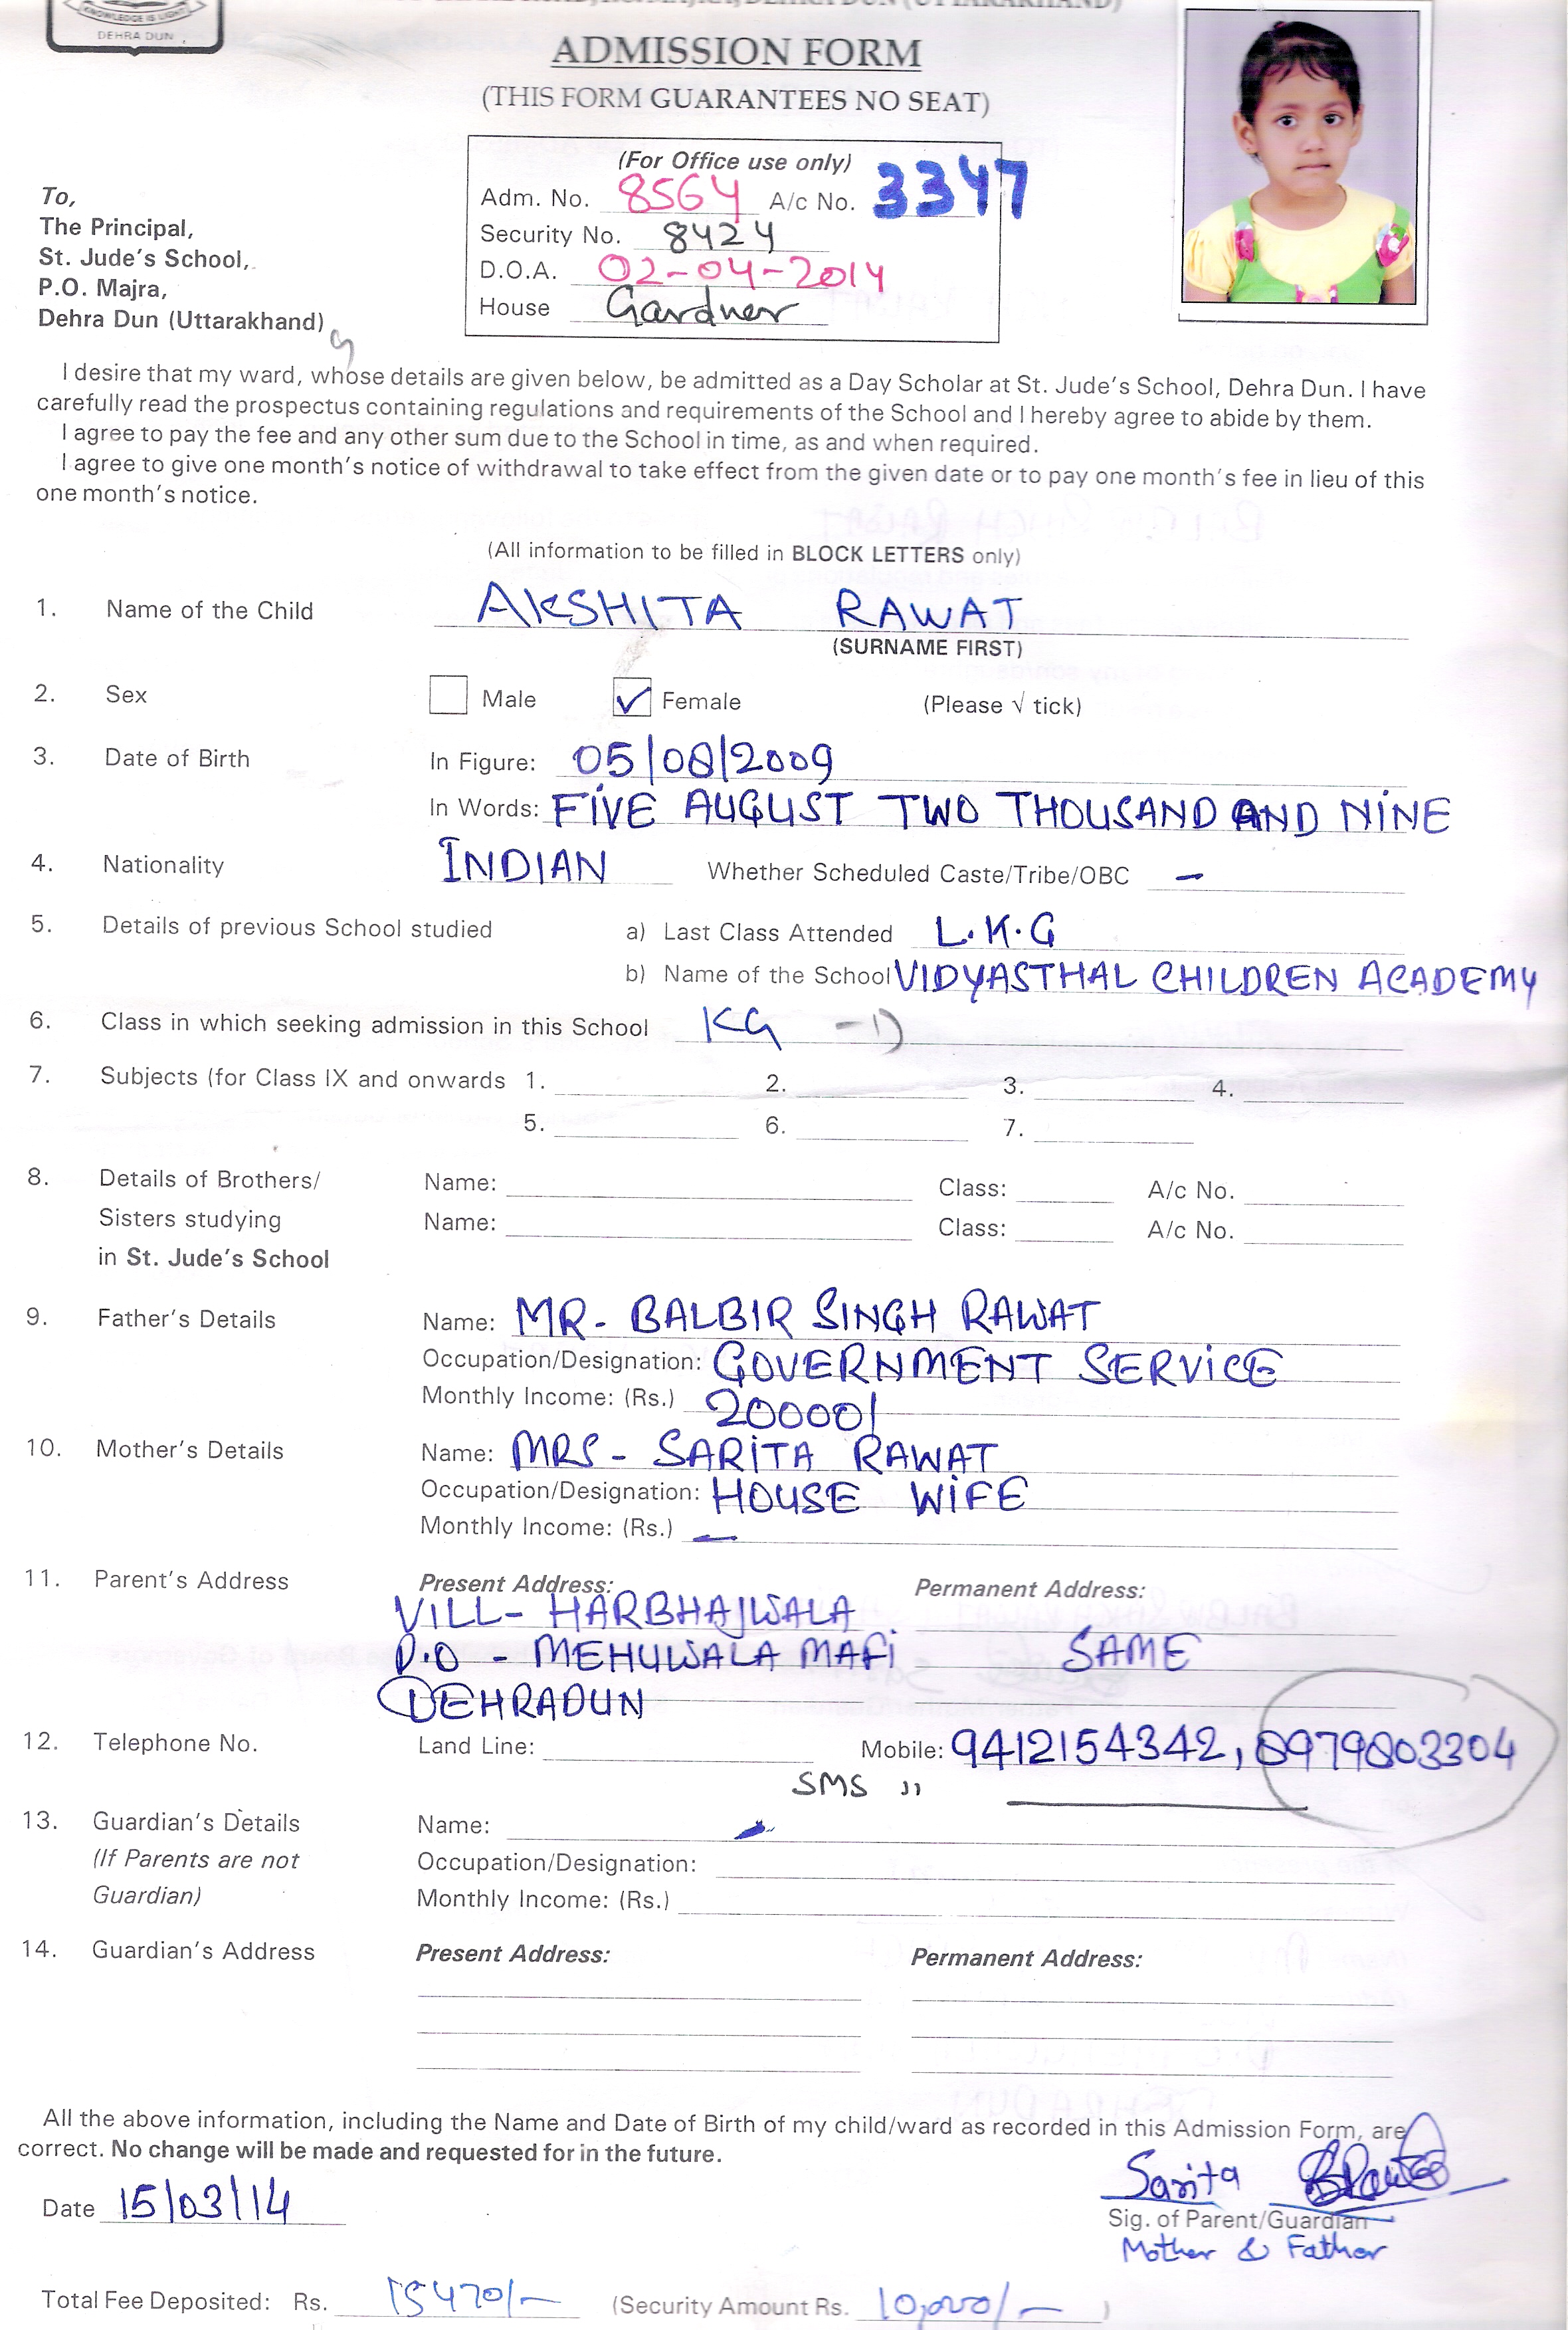 KNOWLEDGE IS LIGHT
DEHRA DUN
ADMISSION FORM
(THIS FORM GUARANTEES NO SEAT)
(For Office use only)
Adm. No. 8564 A/c No. 3347
Security No. 8424
D.O.A. 02-04-2014
House Gardner
To,
The Principal,
St. Jude's School,
P.O. Majra,
Dehra Dun (Uttarakhand)
I desire that my ward, whose details are given below, be admitted as a Day Scholar at St. Jude's School, Dehra Dun. I have
carefully read the prospectus containing regulations and requirements of the School and I hereby agree to abide by them.
I agree to pay the fee and any other sum due to the School in time, as and when required.
I agree to give one month's notice of withdrawal to take effect from the given date or to pay one month's fee in lieu of this
one month's notice.
(All information to be filled in BLOCK LETTERS only)
1. Name of the Child AKSHITA RAWAT
(SURNAME FIRST)
2. Sex Male ✓ Female (Please √ tick)
3. Date of Birth In Figure: 05/08/2009
In Words: FIVE AUGUST TWO THOUSAND AND NINE
4. Nationality INDIAN Whether Scheduled Caste/Tribe/OBC -
5. Details of previous School studied a) Last Class Attended L.K.G
b) Name of the School VIDYASTHAL CHILDREN ACADEMY
6. Class in which seeking admission in this School KG
7. Subjects (for Class IX and onwards 1. 2. 3. 4.
5. 6. 7.
8. Details of Brothers/ Name: Class: A/c No.
Sisters studying Name: Class: A/c No.
in St. Jude's School
9. Father's Details Name: MR- BALBIR SINGH RAWAT
Occupation/Designation: GOVERNMENT SERVICE
Monthly Income: (Rs.) 20000/
10. Mother's Details Name: MRS - SARITA RAWAT
Occupation/Designation: HOUSE WIFE
Monthly Income: (Rs.) -
11. Parent's Address Present Address: Permanent Address:
VILL- HARBHAJWALA
P.O - MEHUWALA MAFI SAME
DEHRADUN
12. Telephone No. Land Line: Mobile: 9412154342, 8979803304
SMS "
13. Guardian's Details Name:
(If Parents are not Occupation/Designation:
Guardian) Monthly Income: (Rs.)
14. Guardian's Address Present Address: Permanent Address:
All the above information, including the Name and Date of Birth of my child/ward as recorded in this Admission Form, are
correct. No change will be made and requested for in the future.
Date 15/03/14 Sarita
Sig. of Parent/Guardian
Mother & Father
Total Fee Deposited: Rs. 15470/- (Security Amount Rs. 10,000/- )